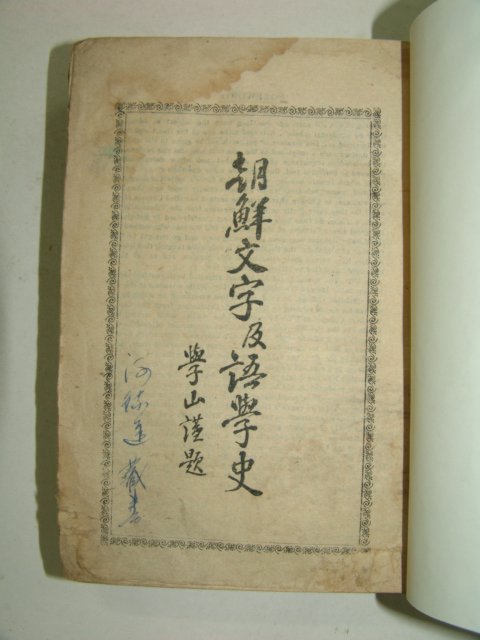 朝鮮文字及語學史
學山謹題
河
藏書